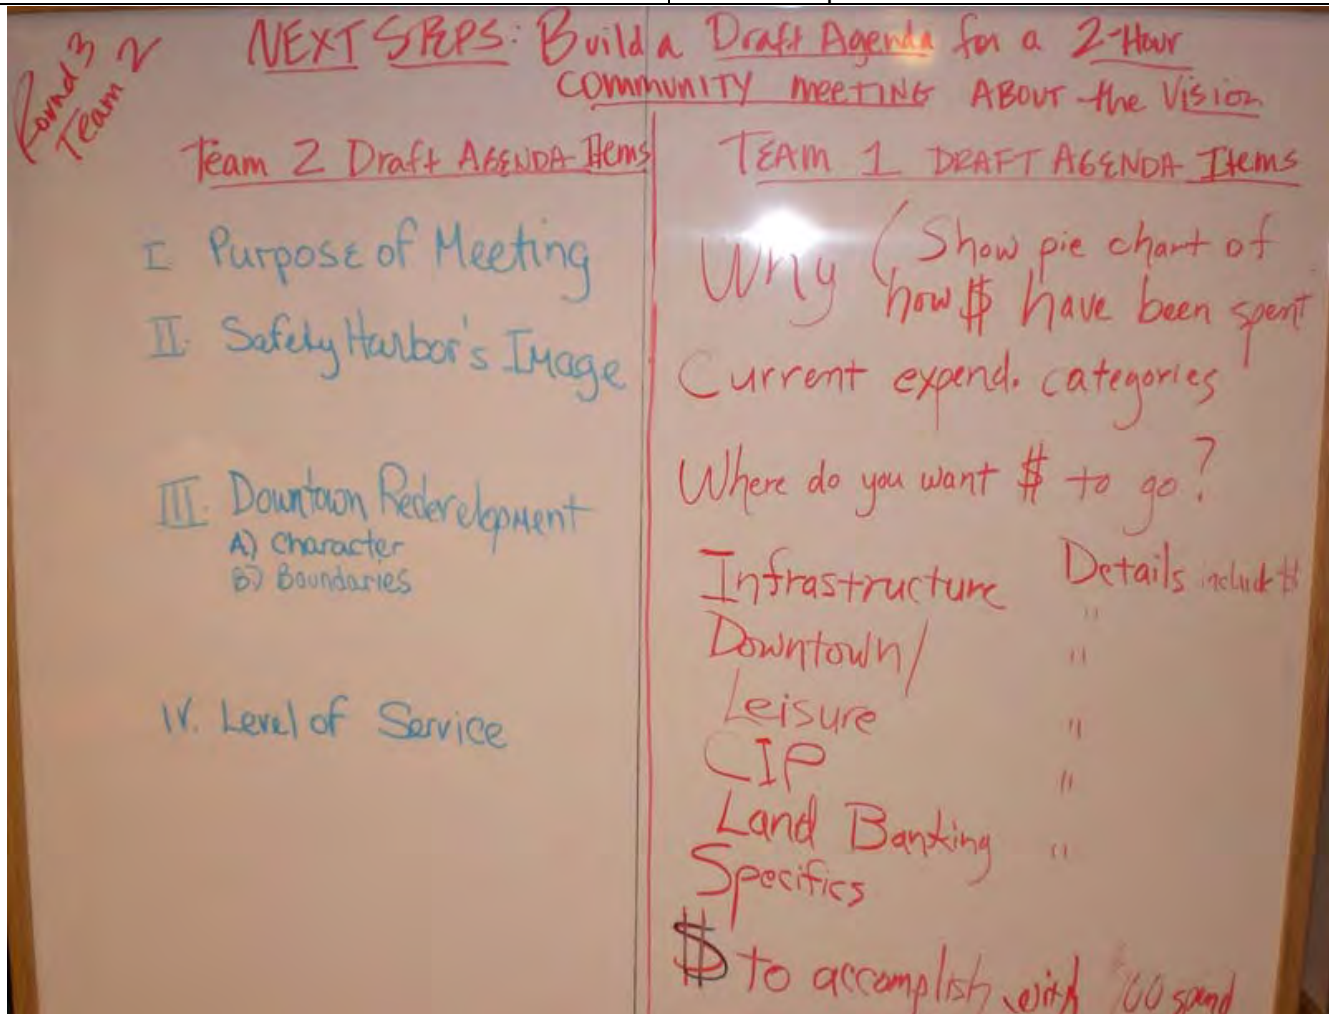 Round 3
Team 2
NEXT STEPS: Build a Draft Agenda for a 2-Hour
COMMUNITY MEETING ABOUT the Vision
Team 2 Draft AGENDA Items
I. Purpose of Meeting
II. Safety Harbor's Image
III. Downtown Redevelopment
A) Character
B) Boundaries
IV. Level of Service
TEAM 1 DRAFT AGENDA Items
Why (Show pie chart of
how $ have been spent
Current expend. categories
Where do you want $ to go?
Infrastructure Details include $
"
Downtown/ "
Leisure "
CIP "
Land Banking "
Specifics
$ to accomplish with 100 spend